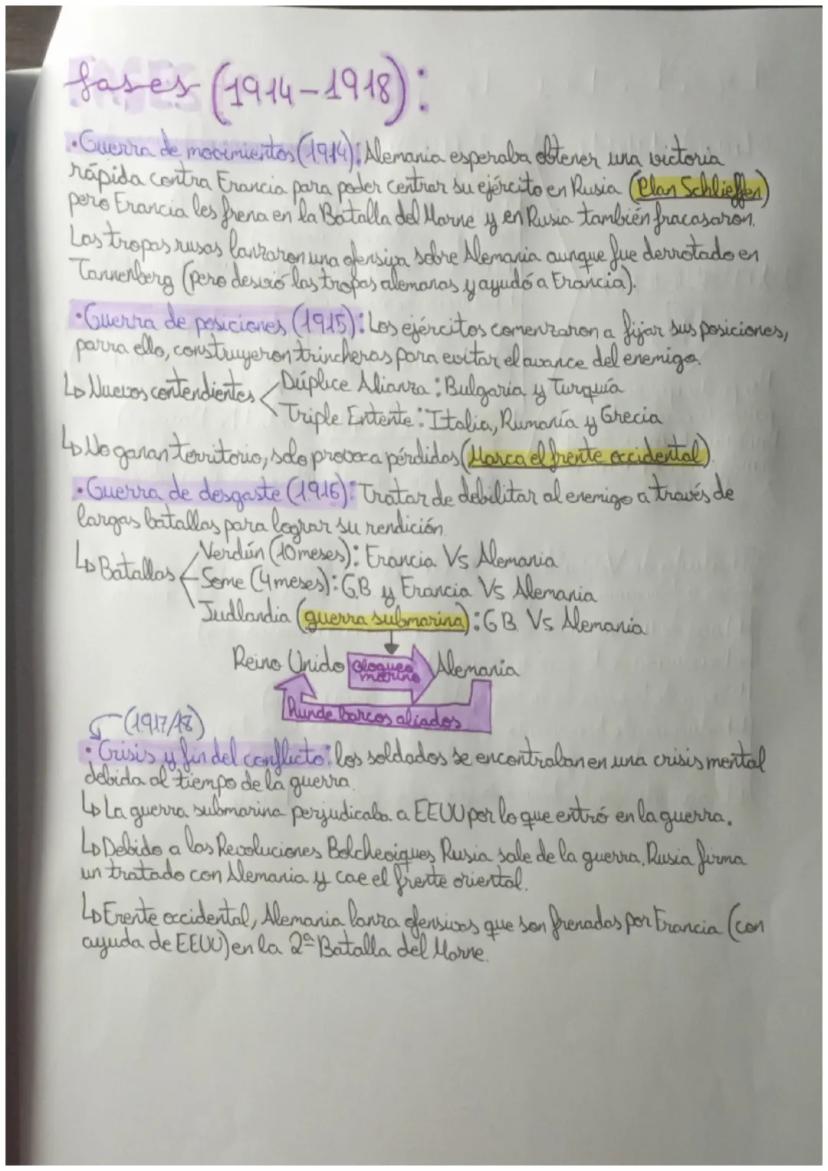 fases (1914-1918):
• Guerra de movimientos (1914): Alemania esperaba obtener una victoria
rápida contra Francia para poder centrar su ejército en Rusia (Plan Schlieffen)
pero Francia les frena en la Batalla del Marne y en Rusia también fracasaron.
Las tropas rusas lanzaron una ofensiva sobre Alemania aunque fue derrotado en
Tannenberg (pero desvió las tropas alemanas y ayudó a Francia).
• Guerra de posiciones (1915): Los ejércitos comenzaron a fijar sus posiciones,
parra ello, construyeron trincheras para evitar el avance del enemigo.
↳ Nuevos contendientes < Dúplice Alianza: Bulgaria y Turquía
Triple Entente: Italia, Rumanía y Grecia
↳ No ganan territorio, solo provoca pérdidas (Marca el frente occidental).
• Guerra de desgaste (1916): Tratar de debilitar al enemigo a través de
largas batallas para lograr su rendición
↳ Batallas < Verdún (10 meses): Francia Vs Alemania
Some (4 meses): GB y Francia Vs Alemania
Judlandia (guerra submarina): GB Vs Alemania
Reino Unido Bloqueo marino Alemania
Hunde barcos aliados
(1917/18)
• Crisis y fin del conflicto: los soldados se encontraban en una crisis mental
debida al tiempo de la guerra.
↳ La guerra submarina perjudicaba a EEUU por lo que entró en la guerra.
↳ Debido a las Revoluciones Bolcheviques Rusia sale de la guerra, Rusia firma
un tratado con Alemania y cae el frente oriental.
↳ Frente occidental, Alemania lanza ofensivas que son frenadas por Francia (con
ayuda de EEUU) en la 2ª Batalla del Marne.